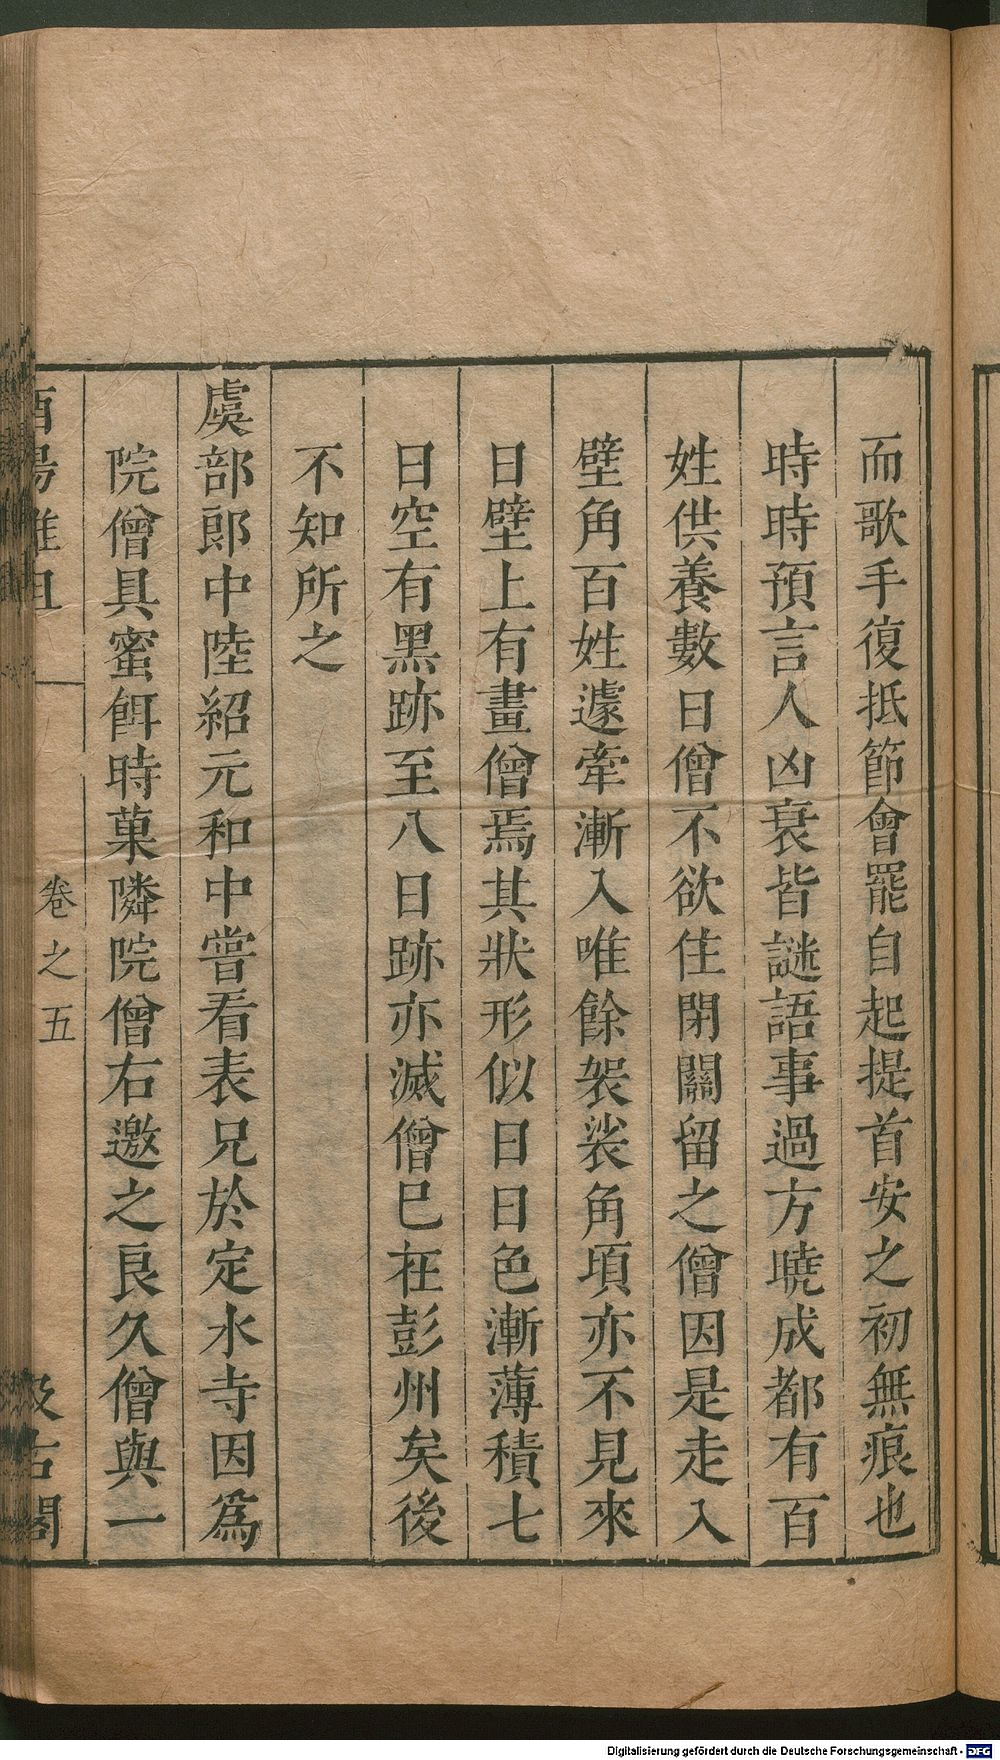 而歌手復抵節會罷自起提首安之初無痕也
時時預言人凶衰皆謎語事過方曉成都有百
姓供養數日僧不欲住閉關留之僧因是走入
壁角百姓遽牽漸入唯餘袈裟角頃亦不見來
日壁上有畫僧焉其狀形似日日色漸薄積七
日空有黑跡至八日跡亦滅僧已在彭州矣後
不知所之
虞部郎中陸紹元和中嘗看表兄於定水寺因爲
院僧具蜜餌時菓隣院僧右邀之良久僧與一
酉陽雜俎
卷之五
汲古閣
Digitalisierung gefördert durch die Deutsche Forschungsgemeinschaft - DFG